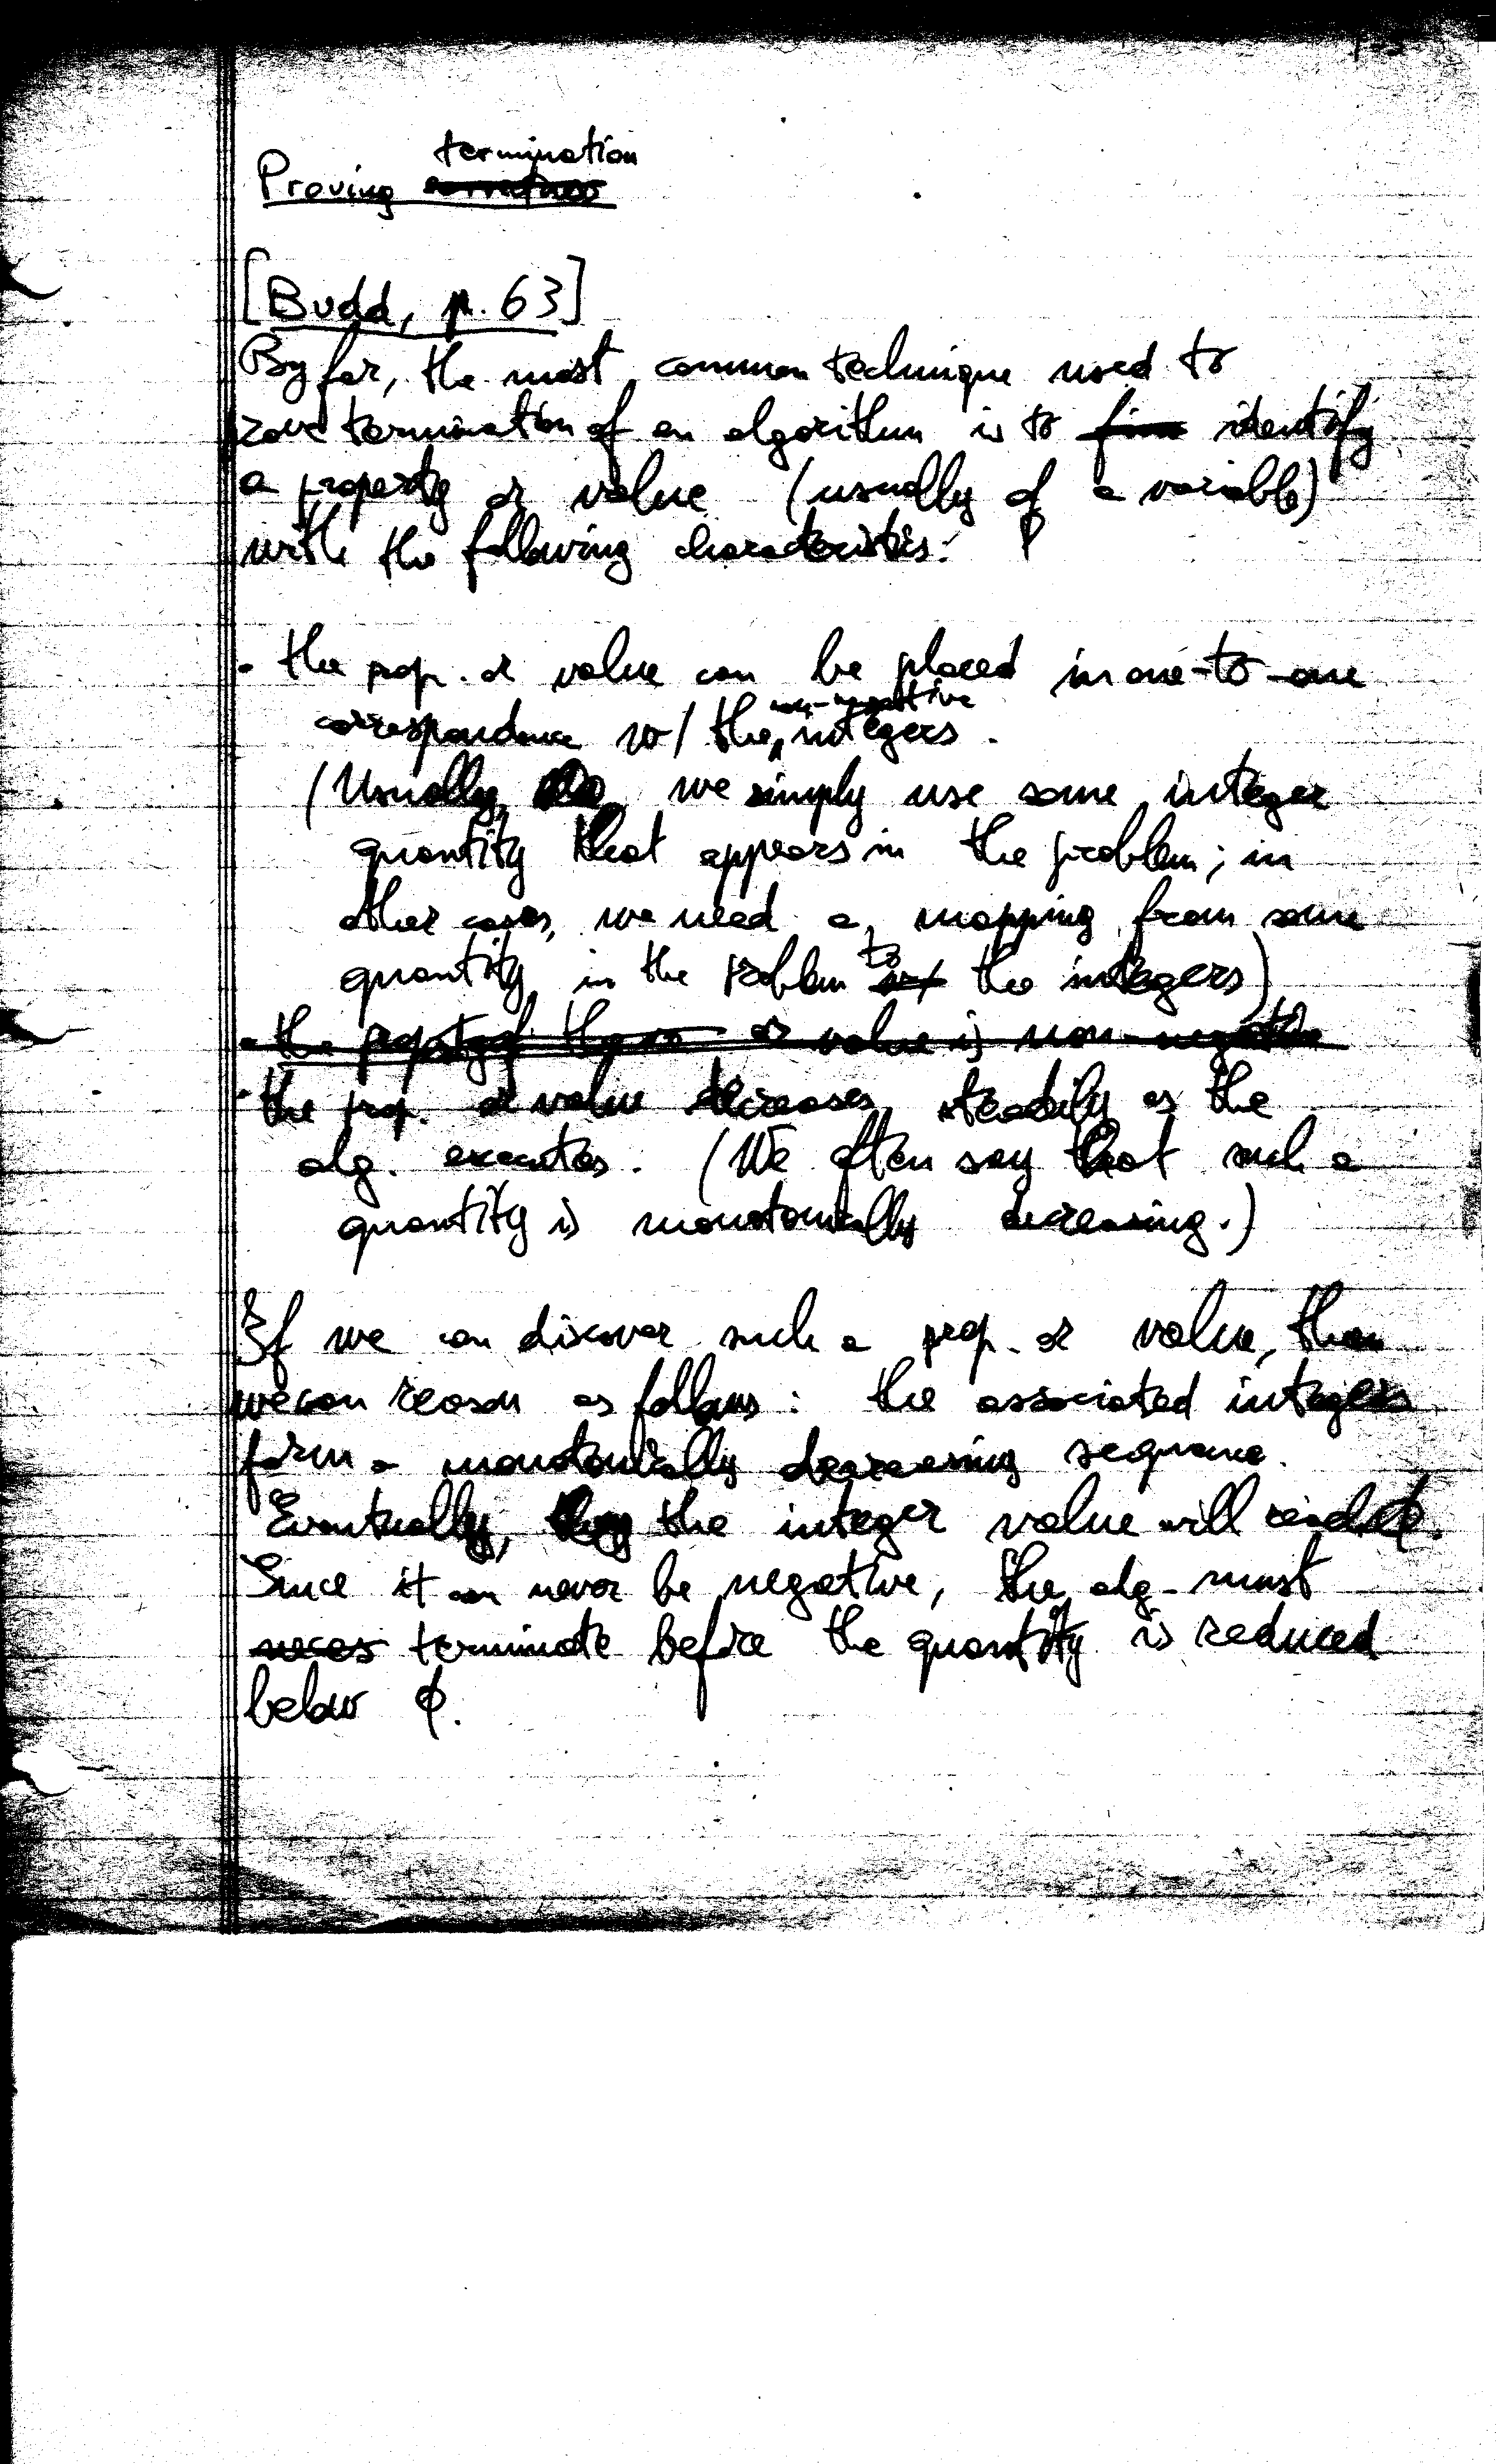 Proving termination
[Budd, p. 63]
By far, the most common technique used to
prove termination of an algorithm is to identify
a property or value (usually of a variable)
with the following characteristics:
• the prop. or value can be placed in one-to-one
correspondence w/ the non-negative integers.
(Usually, we simply use some integer
quantity that appears in the problem; in
other cases, we need a mapping from some
quantity in the problem to the integers)
• the prop. or value decreases steadily as the
alg. executes. (We often say that such a
quantity is monotonically decreasing.)
If we can discover such a prop. or value, then
we can reason as follows: the associated integers
form a monotonically decreasing sequence.
Eventually, the integer value will reach 0.
Since it can never be negative, the alg. must
terminate before the quantity is reduced
below 0.